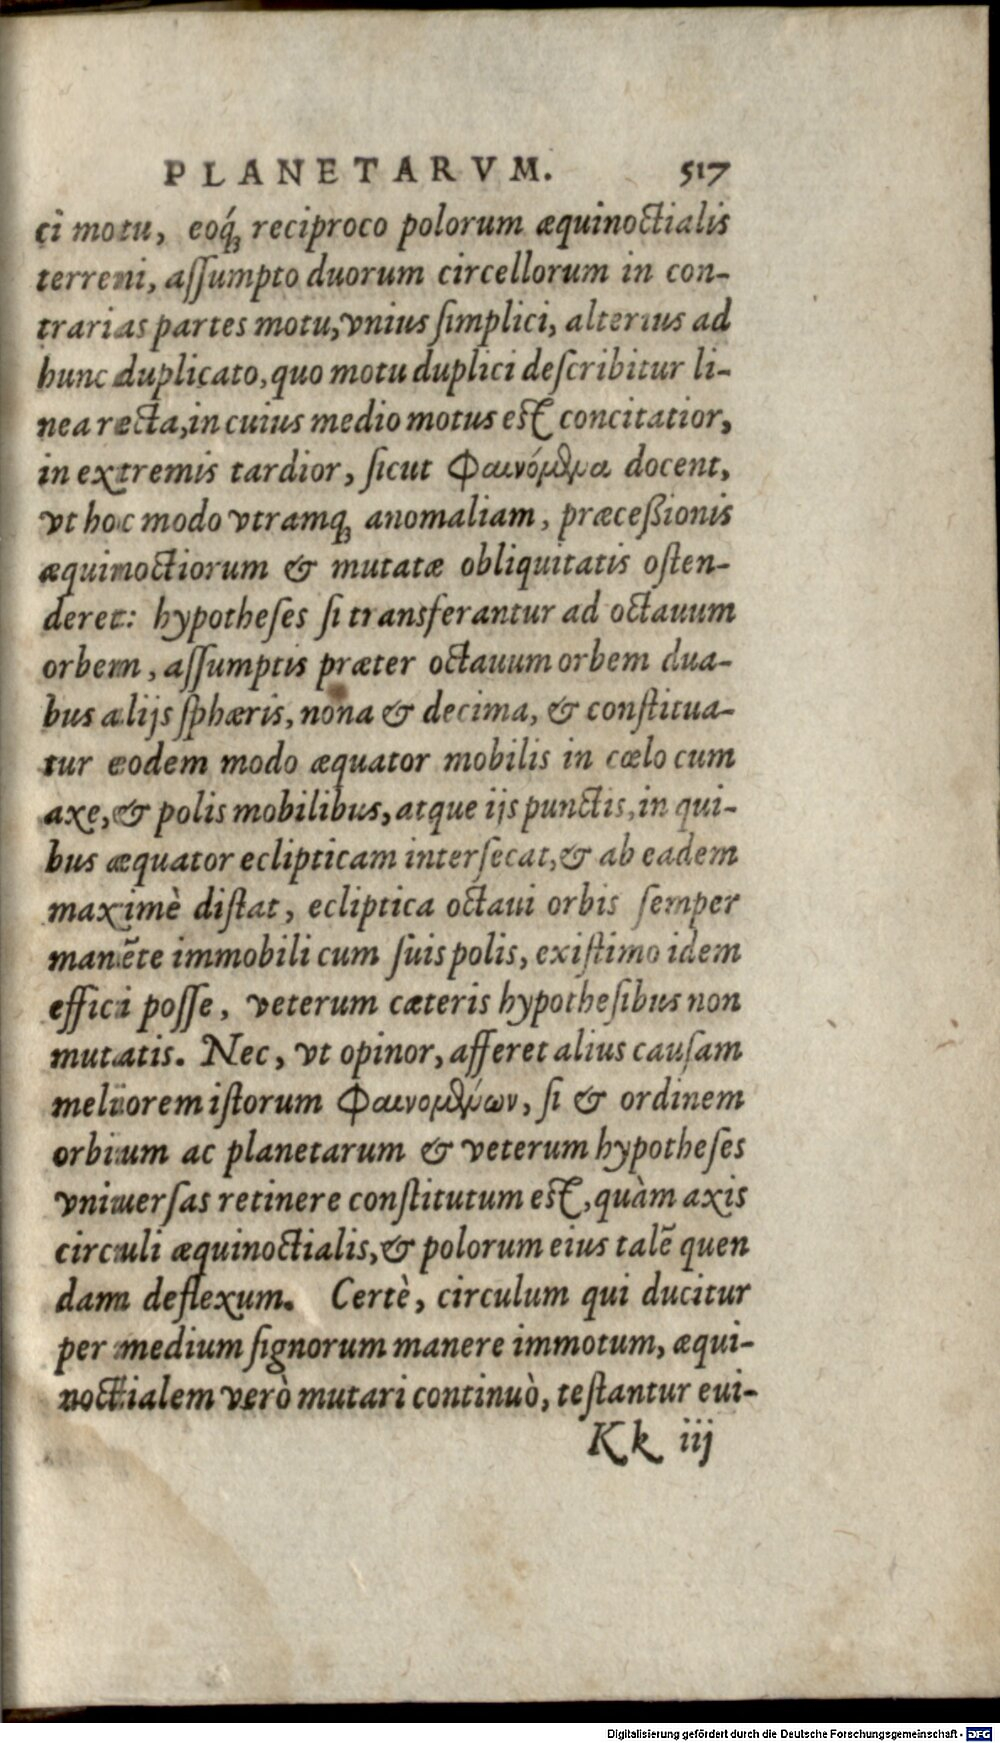 PLANETARVM. 517
ci motu, eoq́ꝫ reciproco polorum æquinoctialis
terreni, aſſumpto duorum circellorum in con-
trarias partes motu, vnius ſimplici, alterius ad
hunc duplicato, quo motu duplici deſcribitur li-
nea recta, in cuius medio motus est concitatior,
in extremis tardior, ſicut Φαινόμϑμα docent,
vt hoc modo vtramqꝫ anomaliam, præceßionis
æquinoctiorum & mutatæ obliquitatis oſten-
deret: hypotheſes ſi transferantur ad octauum
orbem, aſſumptis præter octauum orbem dua-
bus alijs ſphæris, nona & decima, & conſtitua-
tur eodem modo æquator mobilis in cœlo cum
axe, & polis mobilibus, atque ijs punctis, in qui-
bus æquator eclipticam interſecat, & ab eadem
maximè diſtat, ecliptica octaui orbis ſemper
manẽte immobili cum ſuis polis, exiſtimo idem
effici poſſe, veterum cæteris hypotheſibus non
mutatis. Nec, vt opinor, afferet alius cauſam
meliorem iſtorum Φαινομϑμ́ων, ſi & ordinem
orbium ac planetarum & veterum hypotheſes
vniuerſas retinere conſtitutum est, quàm axis
circuli æquinoctialis, & polorum eius talẽ quen
dam deflexum. Certè, circulum qui ducitur
per medium ſignorum manere immotum, æqui-
noctialem verò mutari continuò, teſtantur eui-
Kk iij
Digitalisierung gefördert durch die Deutsche Forschungsgemeinschaft - DFG